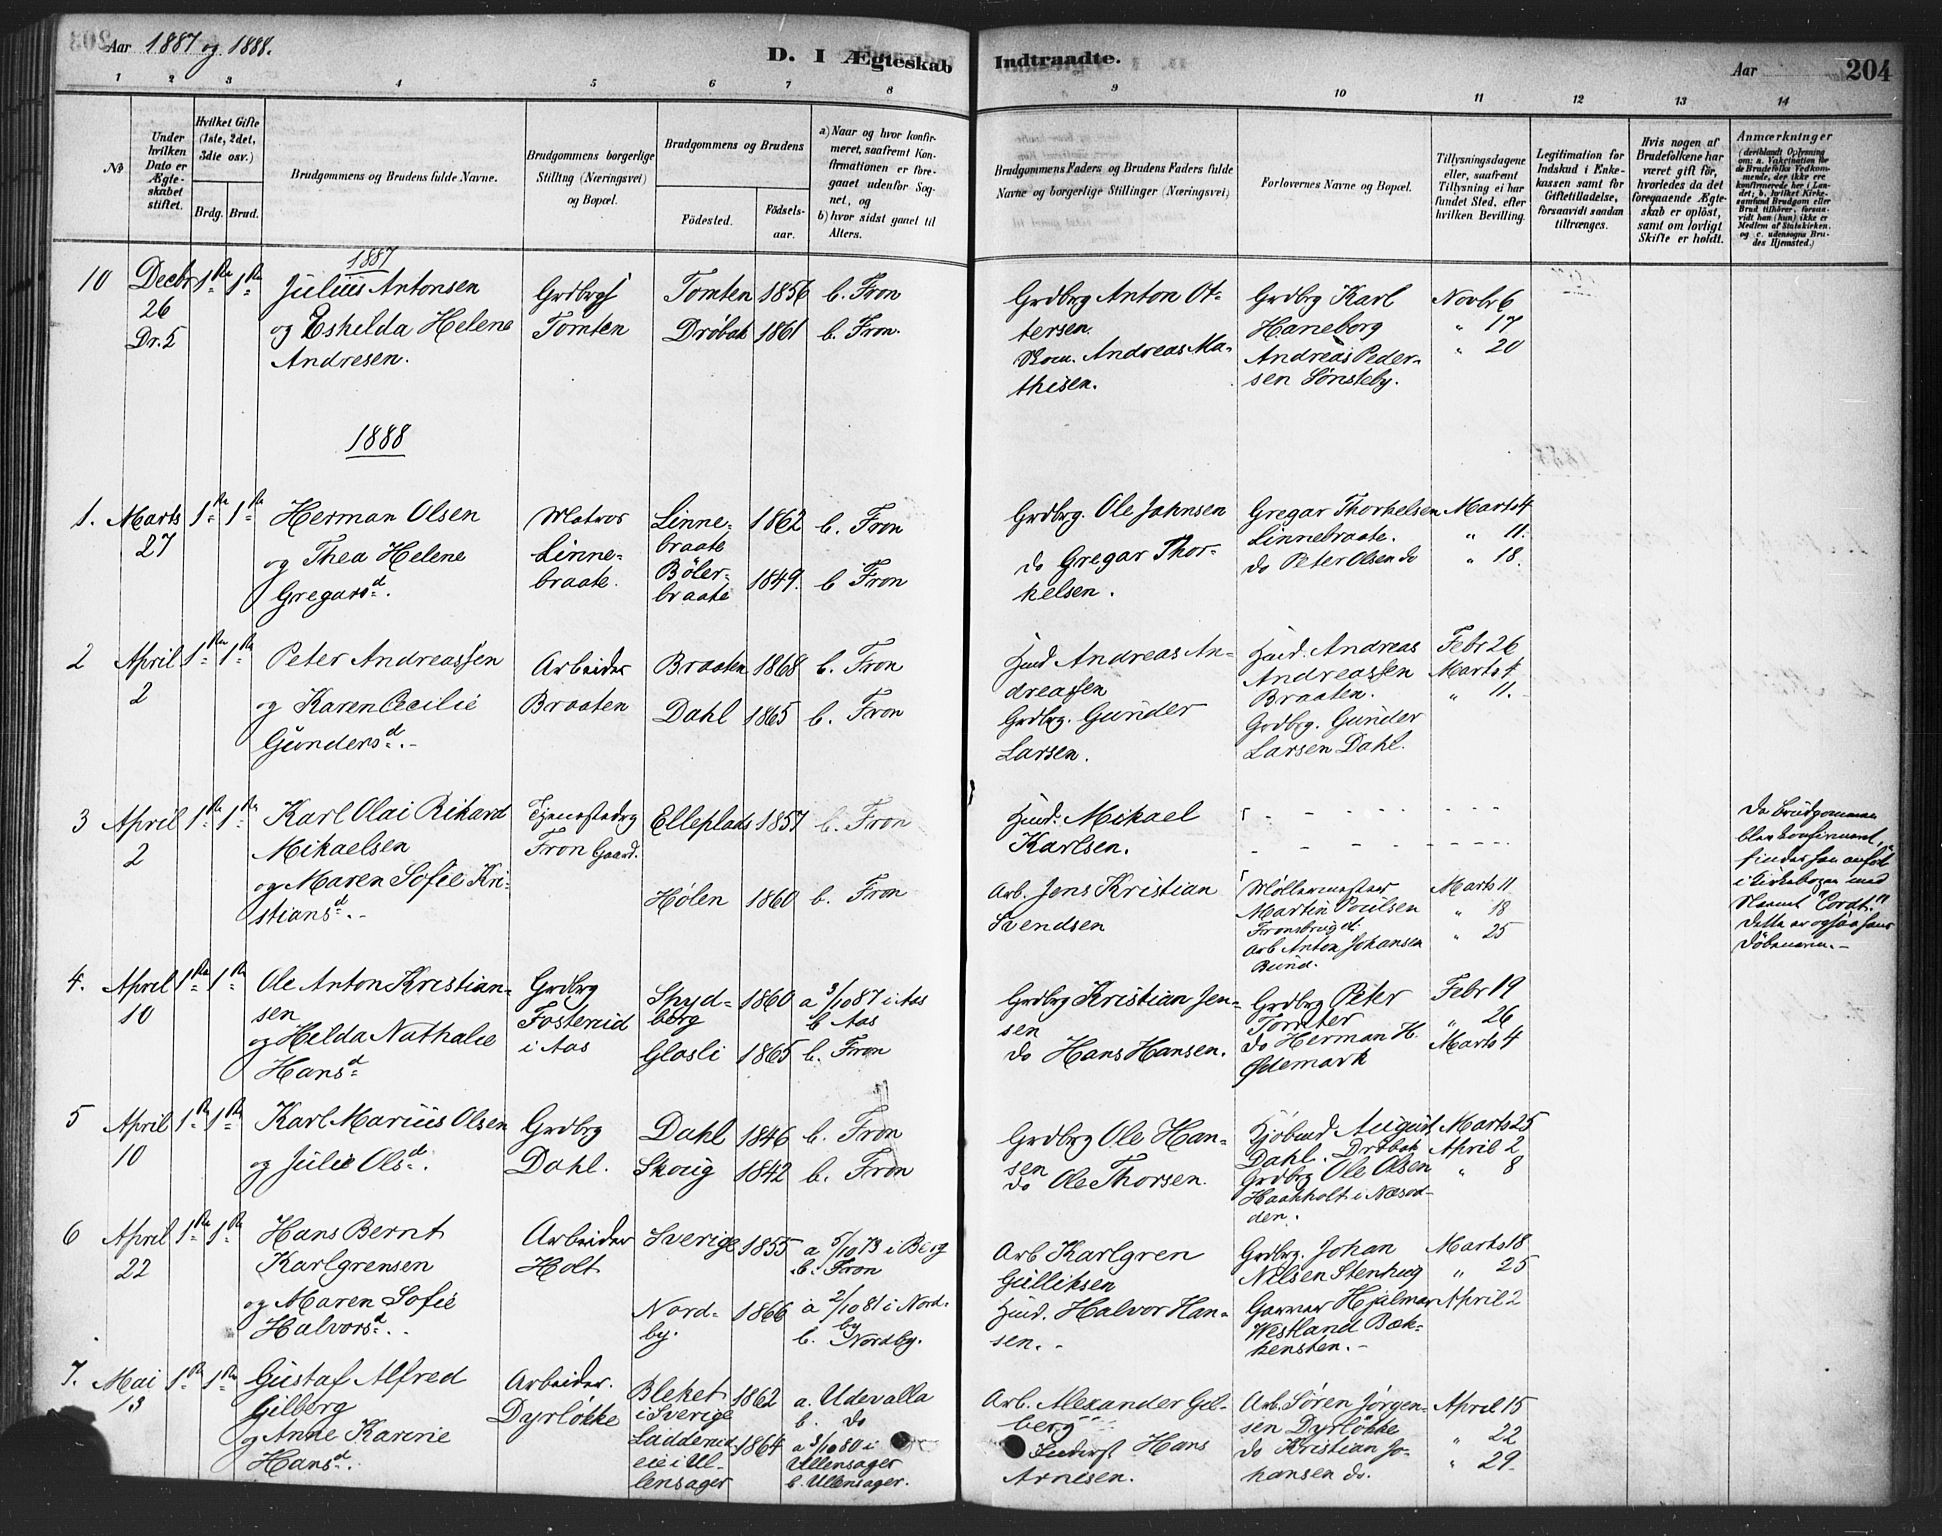 Aar 1887 og 1888.
D. I Ægteskab Indtraadte.
Aar 204
1 2 3 4 5 6 7 8 9 10 11 12 13 14
No
Under hvilken Dato er Ægteskabet stiftet.
Hvilket Gifte (1ste, 2det, 3die osv.)
Brdg. Brud.
Brudgommens og Brudens fulde Navne.
Brudgommens borgerlige Stilling (Næringsvei) og Bopæl.
Brudgommens og Brudens
Fødested. Fødselsaar.
a) Naar og hvor konfirmeret, saafremt Konfirmationen er foregaaet udenfor Sognet, og
b) hvor sidst gaaet til Alters.
Brudgommens Faders og Brudens Faders fulde Navne og borgerlige Stillinger (Næringsvei)
Forlovernes Navne og Bopæl.
Tillysningsdagene eller, saafremt Tillysning ei har fundet Sted, efter hvilken Bevilling.
Legitimation for Indskud i Enkekassen samt for Giftetilladelse, forsaavidt saadan tiltrænges.
Hvis nogen af Brudefolkene har været gift før, hvorledes da det foregaaende Ægteskab er opløst, samt om lovligt Skifte er holdt.
Anmærkninger (deriblandt Oplysning om: a. Vakcination for de Brudefolks Vedkommende, der ikke ere konfirmerede her i Landet; b. hvilket Kirkesamfund Brudgom eller Brud tilhører, forsaavidt han (hun) ikke er Medlem af Statskirken. og c. udensogns Brudes Hjemsted.)
1887
10 Decbr 26 Dr. 5 1ste 1ste
Julius Antonsen
og Eshilda Helene
Andresen.
Grdbrgs
Tomten
Tomten 1856 b. Fron
Drøbak 1861 b. Fron.
Grdbrg Anton Ot-
tersen.
Andreas Ma-
thisen.
Grdbrg Karl
Haneborg
Andreas Peder-
sen Sønsteby.
Novbr 6
" 17
" 20
1888
1. Marts 27 1ste 1ste
Herman Olsen
og Thea Helene
Gregarsd.
Matros
Linne-
braate.
Linne-
braate 1862 b. Fron
Bøler-
braate 1849. b Fron
Grdbrg. Ole Jahnsen
do Gregar Thor-
kelsen.
Gregar Thorkelsen
Linnebraate.
do Peter Olsen do
Marts 4
" 11.
" 18.
2 April 2 1ste 1ste
Peter Andreassen
og Karen Cecilie
Gundersd.
Arbeider
Braaten
Braaten 1868 b. Fron
Dahl 1865 b. Fron
Husd Andreas An-
dreassen
Grdbrg. Gunder
Larsen.
Husd. Andreas
Andreassen
Braaten.
Grdbrg. Gunder
Larsen Dahl.
Febr 26
Marts 4
" 11.
3 April 2 1ste 1ste
Karl Olai Rikard
Mikaelsen
og Maren Sofie Kri-
stiansd.
Tjenestedrg
Fron Gaard.
Elleplads 1857 b. Fron
Hølen 1860 b. Fron
Husd. Mikael
Karlsen.
Arb. Jens Kristian
Svendsen
Møllermester
Martin Poulsen
Fronsbruget
Arb Anton Johansen
Bund.
Marts 11
" 18
" 25
Da Brudgommen
blev konfirmeret,
findes han anført
i Kirkebogen med
Navnet "Cordt."
Dette er ogsaa hans
Døbenavn.
4. April 10 1ste 1ste
Ole Anton Kristian-
sen
og Hilda Nathalie
Hansd
Grdbrg
Fosterud
i Aas
Skyd-
berg 1860 a 3/10 87 i Aas
b Aas
Glosli 1865 b. Fron
Grdbrg Kristian Jen-
sen
do Hans Hansen.
Grdbrg Peter
Tomter
do Herman H.
Ødemark
Febr 19
" 26
Marts 4
5 April 10 1ste 1ste
Karl Marius Olsen
og Julie Olsd.
Grdbrg
Dahl.
Dahl 1846 b. Fron
Skoug 1842 b. Fron
Grdbrg Ole Han-
sen
do Ole Thorsen.
Kjøbmd August
Dahl. Drøbak
Grdbrg Ole Olsen
Haakholt i Næsod-
den.
Marts 25
April 2
" 8
6 April 22 1ste 1ste
Hans Bernt
Karlgrensen
og Maren Sofie
Halvorsd.
Arbeider
Holt
Sverige 1855 a 5/10 73 i Berg
b. Fron
Nord-
by. 1866 a 2/10 81 i Nord-
by
b. Nordby.
Arb Karlgren
Gulliksen
Husd. Halvor Han-
sen.
Grdbrg. Johan
Nilsen Stenhug
Garver Hjalmar
Westland Bæk-
kensten.
Marts 18
" 25
April 2
7. Mai 13 1ste 1ste
Gustaf Alfred
Gilberg
og Anne Karine
Hansd.
Arbeider.
Dyrløkke
Bleket
i Sverige 1862 a. Udevalla
b. do
Ladderud
eie i Ul-
lensager 1864 a 3/10 80 i
Ullensager
b. Ullensager.
Arb. Alexander Gil-
berg
Inderst Hans
Arnesen.
Arb. Søren Jørgen-
sen Dyrløkke
do Kristian Jo-
hansen do.
April 15
" 22
" 29.